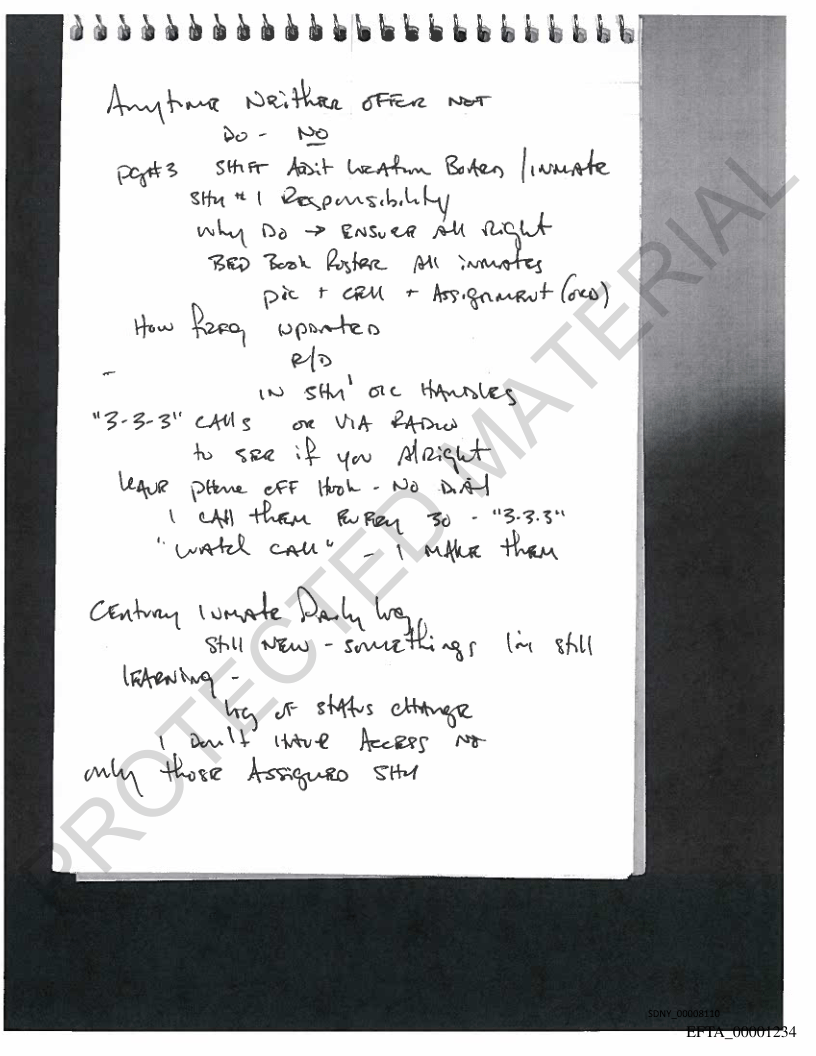 Anytime Neither offer not
Do - No
pg#3 Shift Audit Location Board / inmate
SHU #1 Responsibility
why Do → ENSURE All Right
BED Book Roster All inmates
pic + cell + Assignment
How freq updated
R/D
-
IN SHU OIC HANDLES
"3-3-3" CALLS or VIA RADIO
to see if you Alright
leave phone off Hook - No Dial
I call them Every 30 - "3-3-3"
"watch call" - I make them
Century Inmate Daily log
still New - somethings I'm still
learning -
log of status change
I Don't Have Access
only those Assigned SHU
PROTECTED MATERIAL
SDNY_00008110
EFTA_00001234